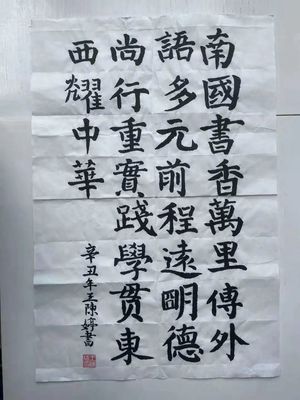 南國書香萬里傳外
語多元前程遠明德
尚行重實踐學贯東
西耀中華
辛丑年王陳婷書